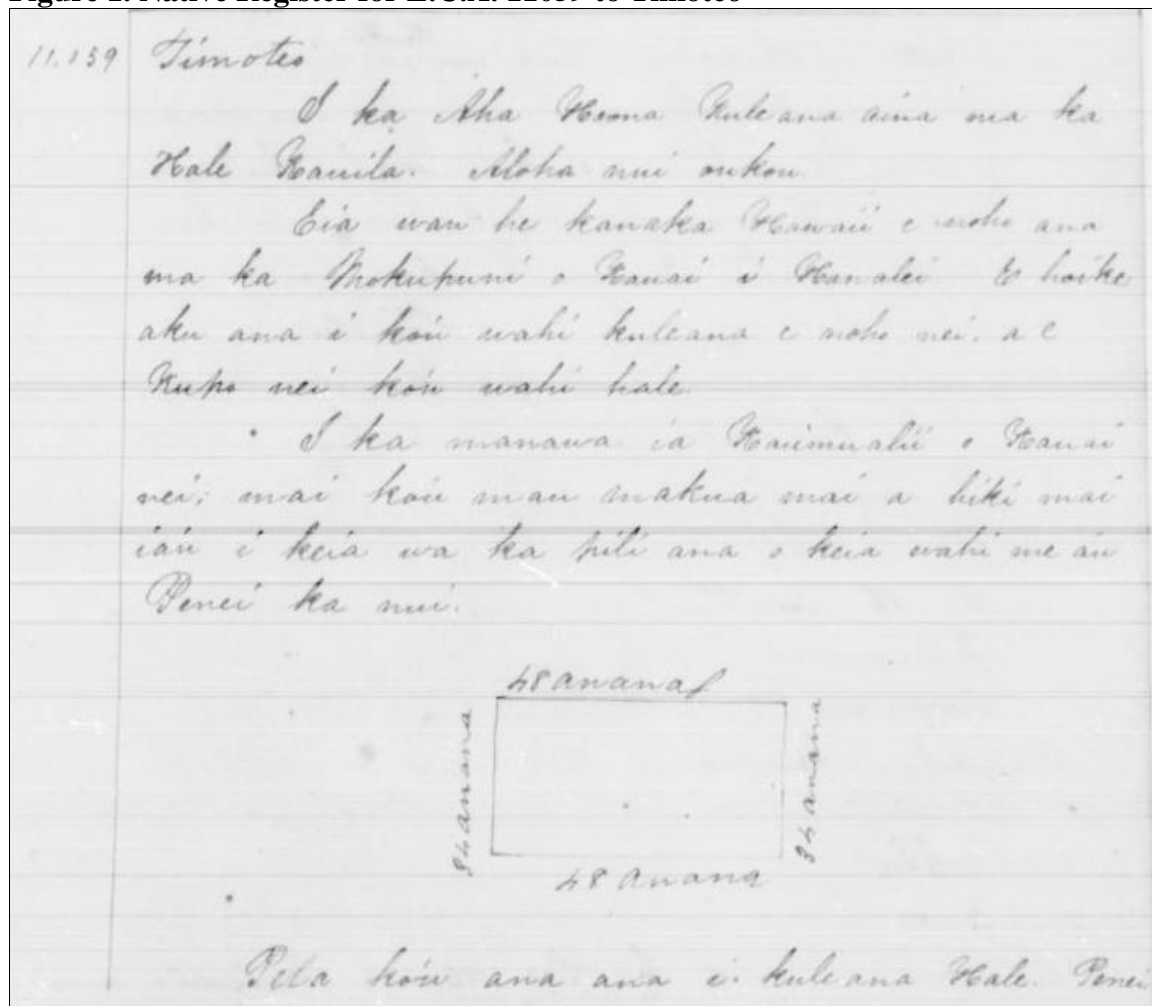 11.059 Timoteo
I ka Aha Hoona Kuleana aina ma ka
Hale Kauila. Aloha nui oukou
Eia wau he kanaka Hawaii e noho ana
ma ka Mokupuni o Kauai i Hanalei. E hoike
aku ana i ko'u wahi kuleana e noho nei, a e
Kupo nei ko'u wahi hale.
I ka manawa ia Kaumualii o Kauai
nei; mai ko'u mau makua mai a hiki mai
ia'u i keia wa ka pili ana o keia wahi me a'u
Penei ka nui.
48 anana
34 anana
34 anana
48 anana
Pela ko'u ana ana i kuleana Hale. Penei